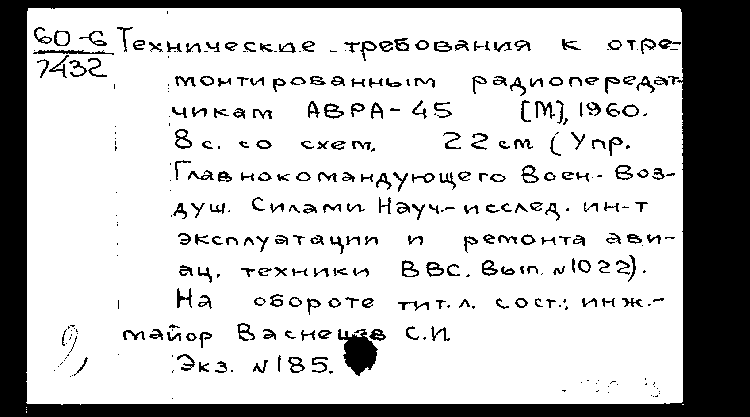 60-6 Технические требования к отре-
7432
монтированным радиопередат-
чикам АВРА-45 [М], 1960.
8 с. со схем. 22 см (Упр.
Главнокомандующего Воен.-Воз-
душ. Силами Науч.-исслед. ин-т
эксплуатации и ремонта ави-
ац. техники ВВС. Вып. №1022).
На обороте тит. л. сост.: инж.-
майор Васнецов С.И.
Экз. №185.